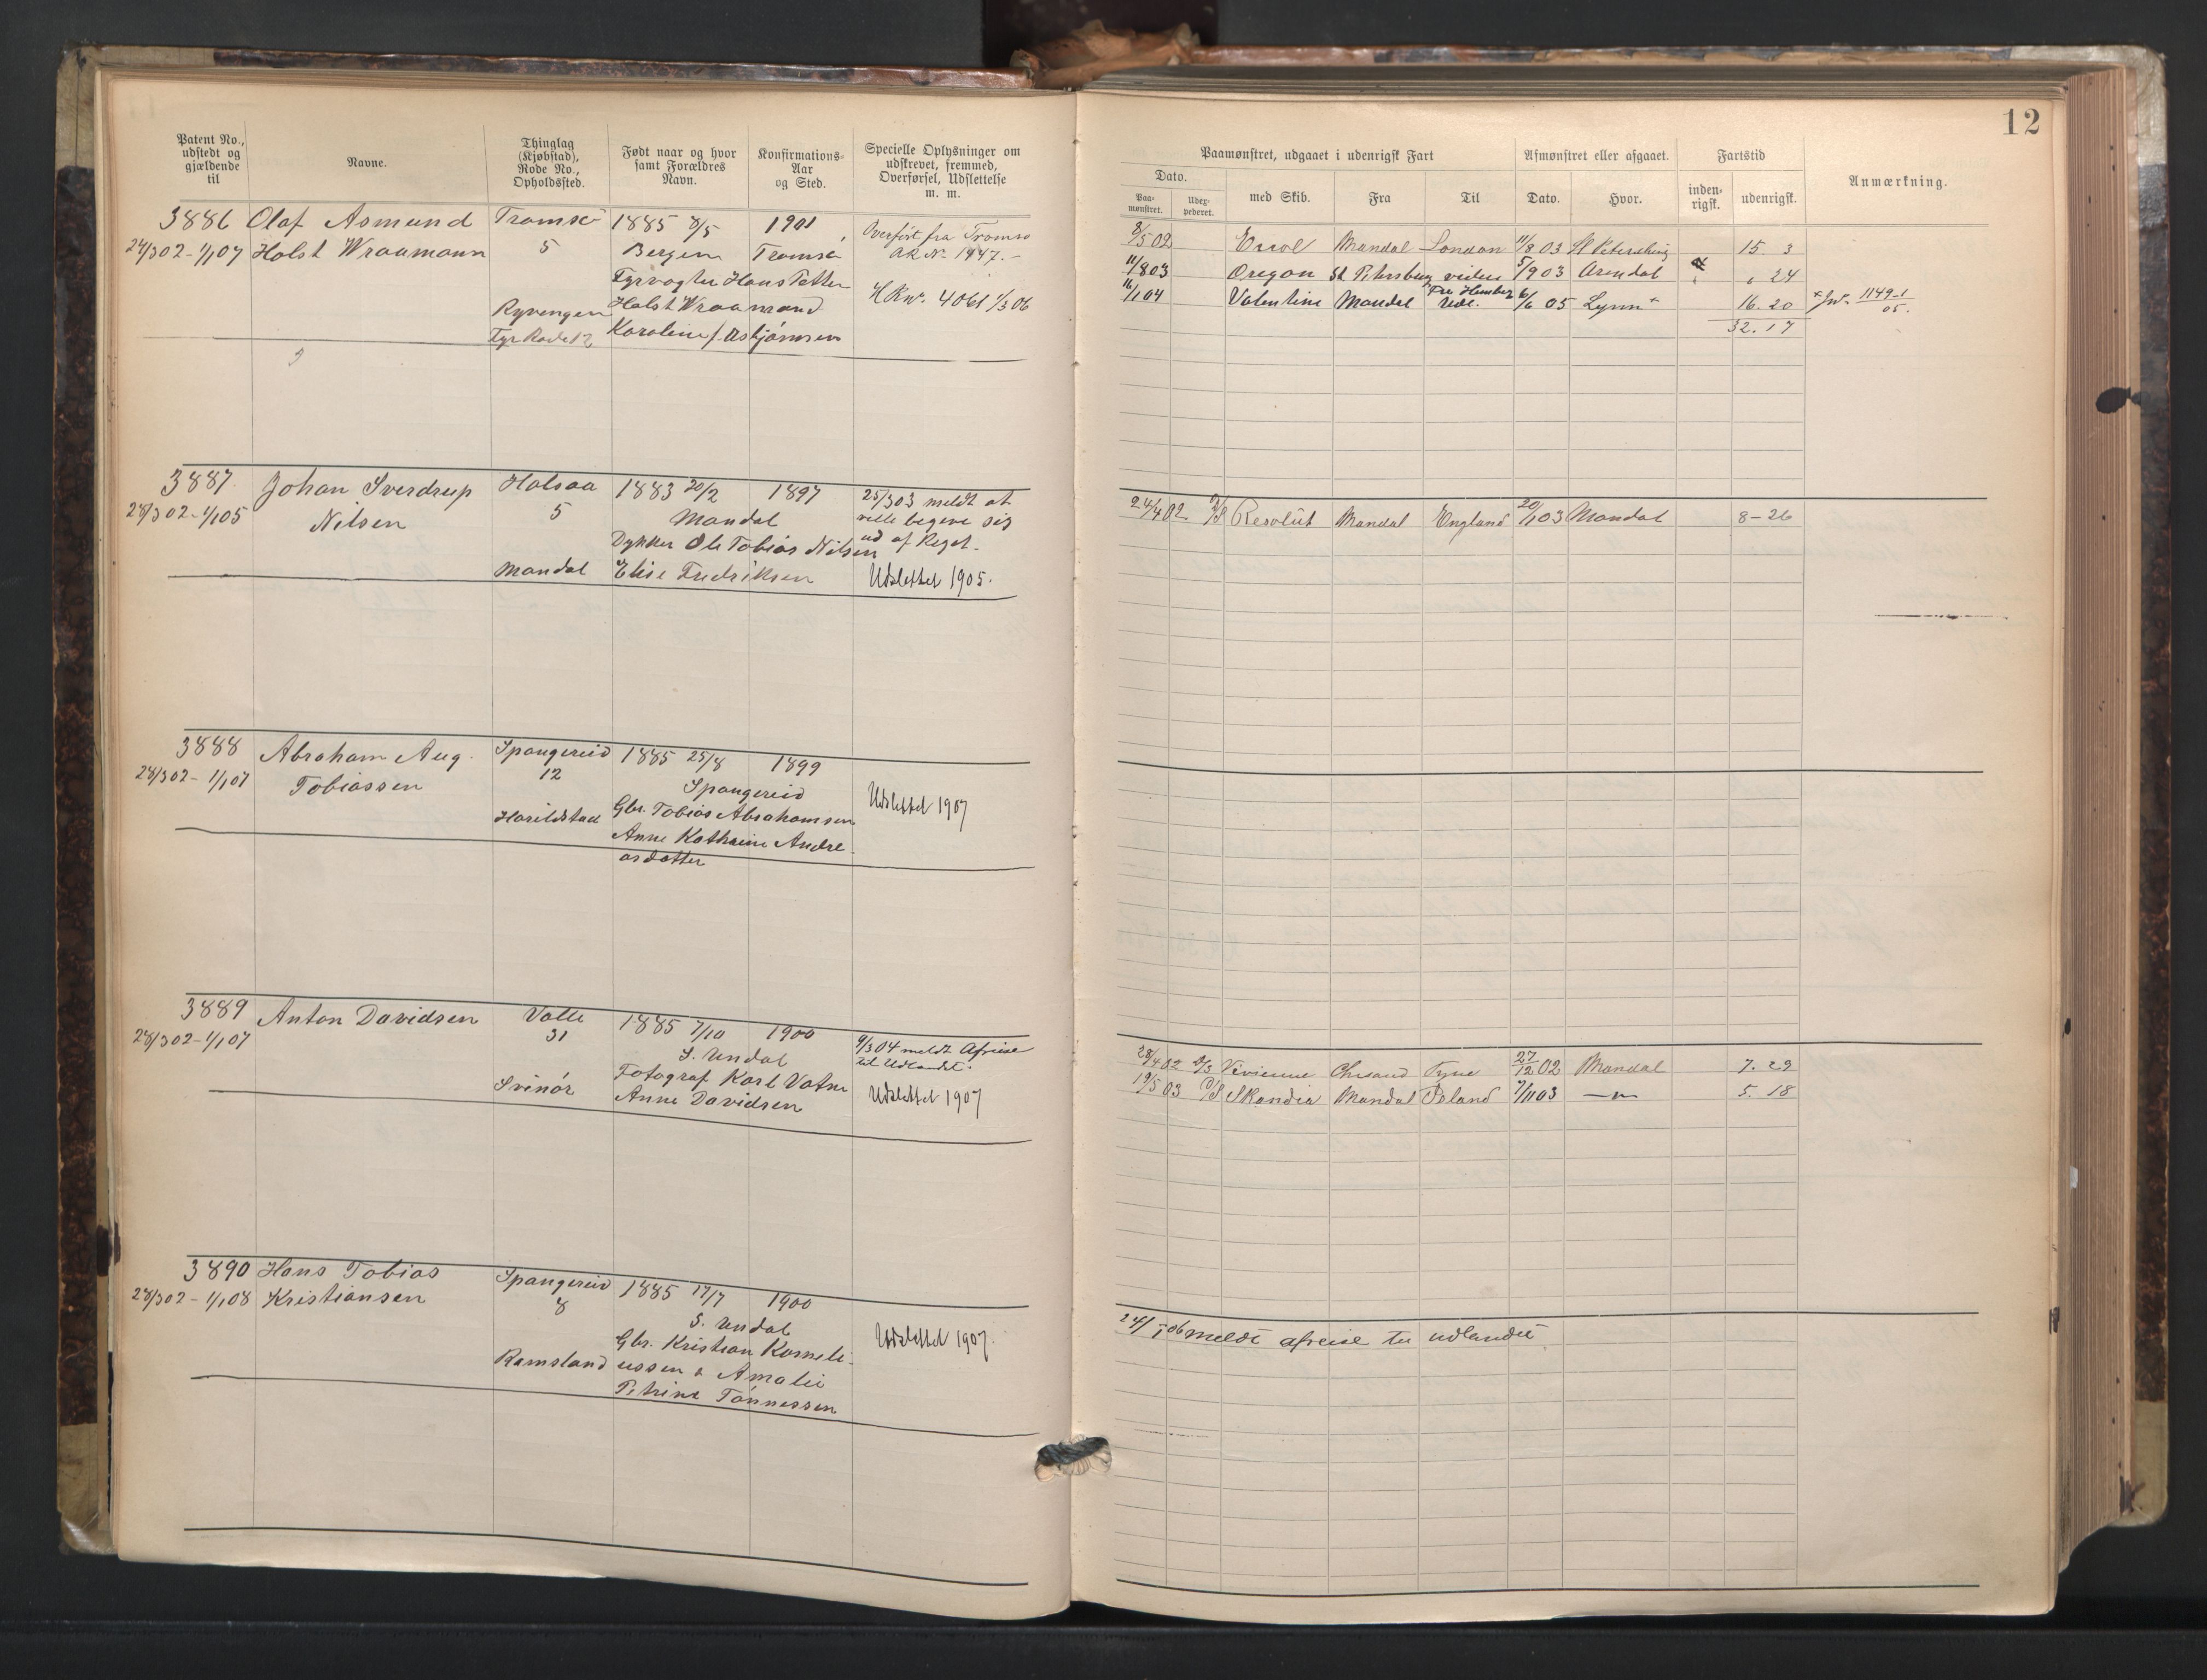 12
Patent No., udstedt og gjældende til
Navne.
Thinglag (Kjøbstad), Rode No., Opholdssted.
Født naar og hvor samt Forældres Navn.
Konfirmations-Aar og Sted.
Specielle Oplysninger om udskrevet, fremmed, Overførsel, Udslettelse m. m.
Paamønstret, udgaaet i udenrigsk Fart
Dato.
Paamønstret.
Udexpederet.
med Skib.
Fra
Til
Afmønstret eller afgaaet.
Dato.
Hvor.
Fartstid
indenrigsk.
udenrigsk.
Anmærkning.
3886 Olaf Asmund Tromsö 1885 8/5 1901 Overført fra Tromsø
24/3 02 - 1/1 07 Holst Wraamann 5 Bergen Tromsö AR No. 1947.-
Fyrvogter Hans Petter
Ryvingen Holst Wraamand HRNr. 4061 1/3 06
Fyr Rode 12 Karoline f. Asbjörnsen
8/5 02 Errol Mandal London 11/8 03 St Petersburg 15. 3
11/8 03 Oregon St. Petersburg videre 5/9 03 Arendal 24
16/1 04 Valentine Mandal Fra Hamburg Udl. 6/6 05 Lynn + 16. 20 + Jnr. 1149-1/05.
32. 17
3887. Johan Sverdrup Halsaa 1883 20/2 1897 25/3 03 meldt at
28/3 02 - 1/1 05 Nilsen 5 Mandal ville begive sig
Dykker Ole Tobias Nilsen ud af Riget.
Mandal Elise Fredriksen Udslettet 1905.
24/4 02 D/S Resolut Mandal England 20/1 03 Mandal 8-26
3888 Abraham Aug. Spangereid 1885 25/8 1899
28/3 02 - 1/1 07 Tobiassen 12 Spangereid
Harildstad Gbr. Tobias Abrahamsen Udslettet 1907
Anne Kathrine Andre-
asdatter
3889 Anton Davidsen Valle 1885 7/10 1900 9/3 04 meldt Afreise
28/3 02 - 1/1 07 31 S. Undal til Udlandet.
Svinör Fotograf Karl Vatne
Anne Davidsen Udslettet 1907
28/4 02 D/S Vivienne Chrsand Tyne 27/12 02 Mandal 7. 29
19/5 03 D/S Skandia Mandal Island 7/11 03 —"— 5. 18
3890 Hans Tobias Spangereid 1885 17/7 1900
28/3 02 - 1/1 08 Kristiansen 8 S. Undal
Gbr. Kristian Korneli- Udslettet 1907.
Ramsland ussen & Amalie
Petrine Tönnessen
24/1 06 meldt afreise til udlandet